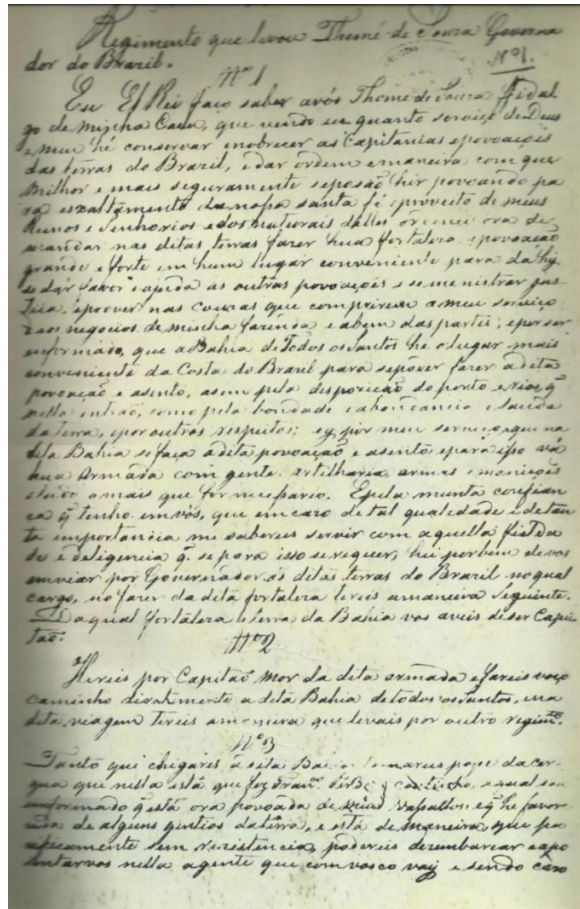 Regimento que levou Thomé de Souza Governa
dor do Brazil.
Nº 1.
Nº 1
Eu El Rei faço saber a vós Thome de Souza Fidal
go de minha Caza, que vendo eu quanto serviço de Deus
e meu hé conservar e nobrecer as Capitanias e povoações
das terras do Brazil, e dar ordem e maneira com que
milhor e mais seguramente se posão hir povoando pa
ra exaltamento da nosa santa fé e proveito de meus
Reinos e Senhorios e dos naturais delles ordenei ora de
mandar nas ditas terras fazer hua fortaleza e povoação
grande e forte em hum lugar conveniente para dahy
se dar favor e ajuda as outras povoações e se menistrar jus
tiça, e prover nas couzas que comprirem a meu serviço
e aos negocios de minha fazenda e a bem das partes; e por ser
enformado, que a Bahia de Todos os Santos he o lugar mais
conveniente da Costa do Brazil para se poder fazer a dita
povoação e asento, asim pela desposição do porto e rios, q̃
nella entrão, como pela bondade e abondancia e saude
da terra, e por outros respeitos; ey por meu serviço, que na
dita Bahia se faça a dita povoação e asento, e para isso vá
hua Armada com gente artelharia, armas e monições
e tudo o mais que for necesario. E pela munta confian
ça q̃ tenho em vós, que em cazo de tal qualidade e de tan
ta importancia me sabereis servir com aquella fielda
de e deligencia q̃ se para isso se requer, hei por bem de vos
enviar por Governador ás ditas terras do Brazil no qual
cargo, e no fazer da dita fortaleza tereis a maneira seguinte.
Da qual fortaleza e terra da Bahia vos aveis de ser Capi
tão.
Nº 2
Hireis por Capitaõ Mor da dita armada e fareis voso
caminho diretamente a dita Bahia de todos os Santos, e na
dita viagem tereis a maneira que levais por outro regimᵗᵒ.
Nº 3
Tanto que chegares á dita Bahia tomareis pose da cer
qua que nella está que fez Franᶜᵒ Coutinho, a qual sou
enformado q̃ está ora povoada de meus vasallos e q̃ he favore
cida de alguns gentios da terra, e está de maneira, que pa
cificamente sem rezistencia, podereis dezembarcar e apo
zentarvos nella a gente que com vosco vay e sendo cazo